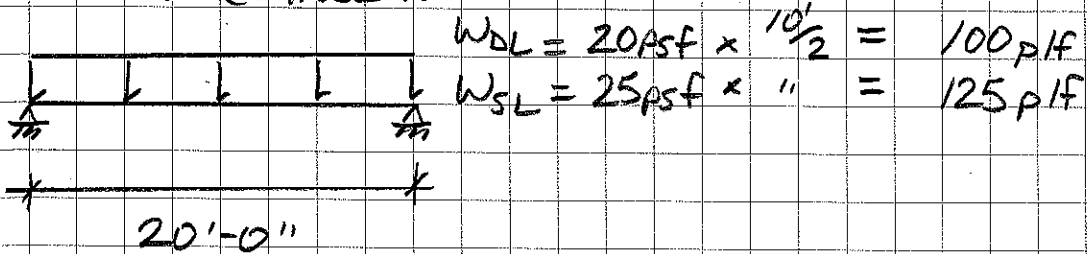 W_DL = 20psf x 10'/2 = 100plf
W_SL = 25psf x " = 125plf
20'-0"